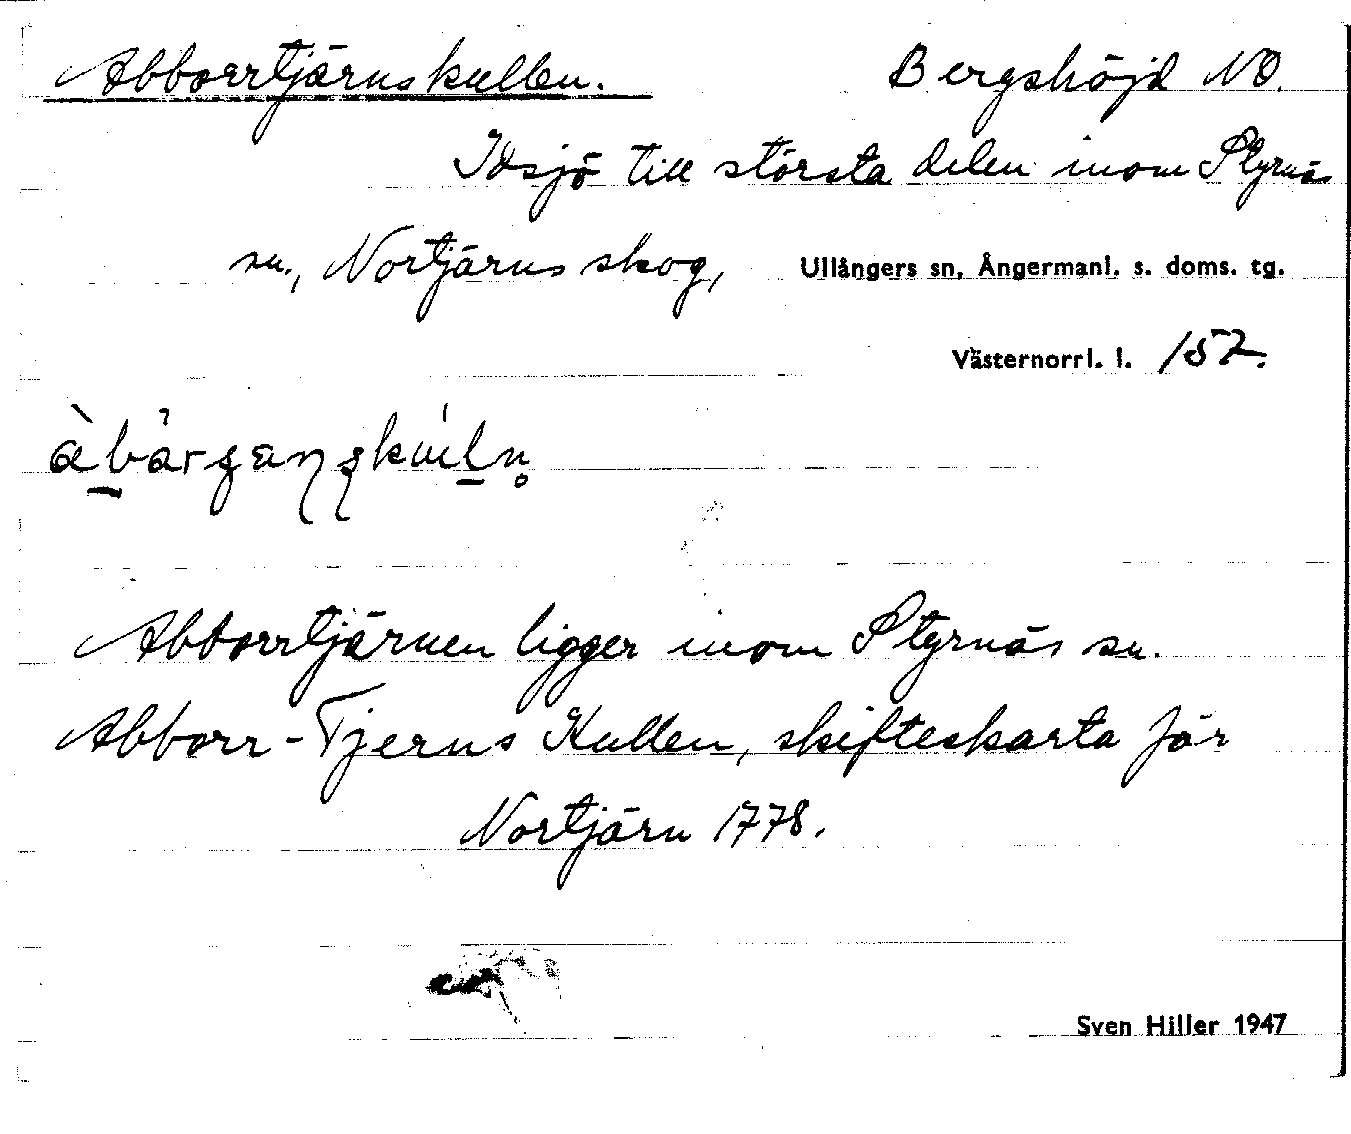 Abborrtjärnskullen. Bergshöjd NO.
Idsjö till största delen inom Styrnäs
sn., Nortjärns skog, Ullångers sn, Ångermanl. s. doms. tg.
Västernorrl. l. 157.
Abborrtjärnen ligger inom Styrnäs sn.
Abborr-Tjerns Kullen, skifteskarta för
Nortjärn 1778.
Sven Hiller 1947